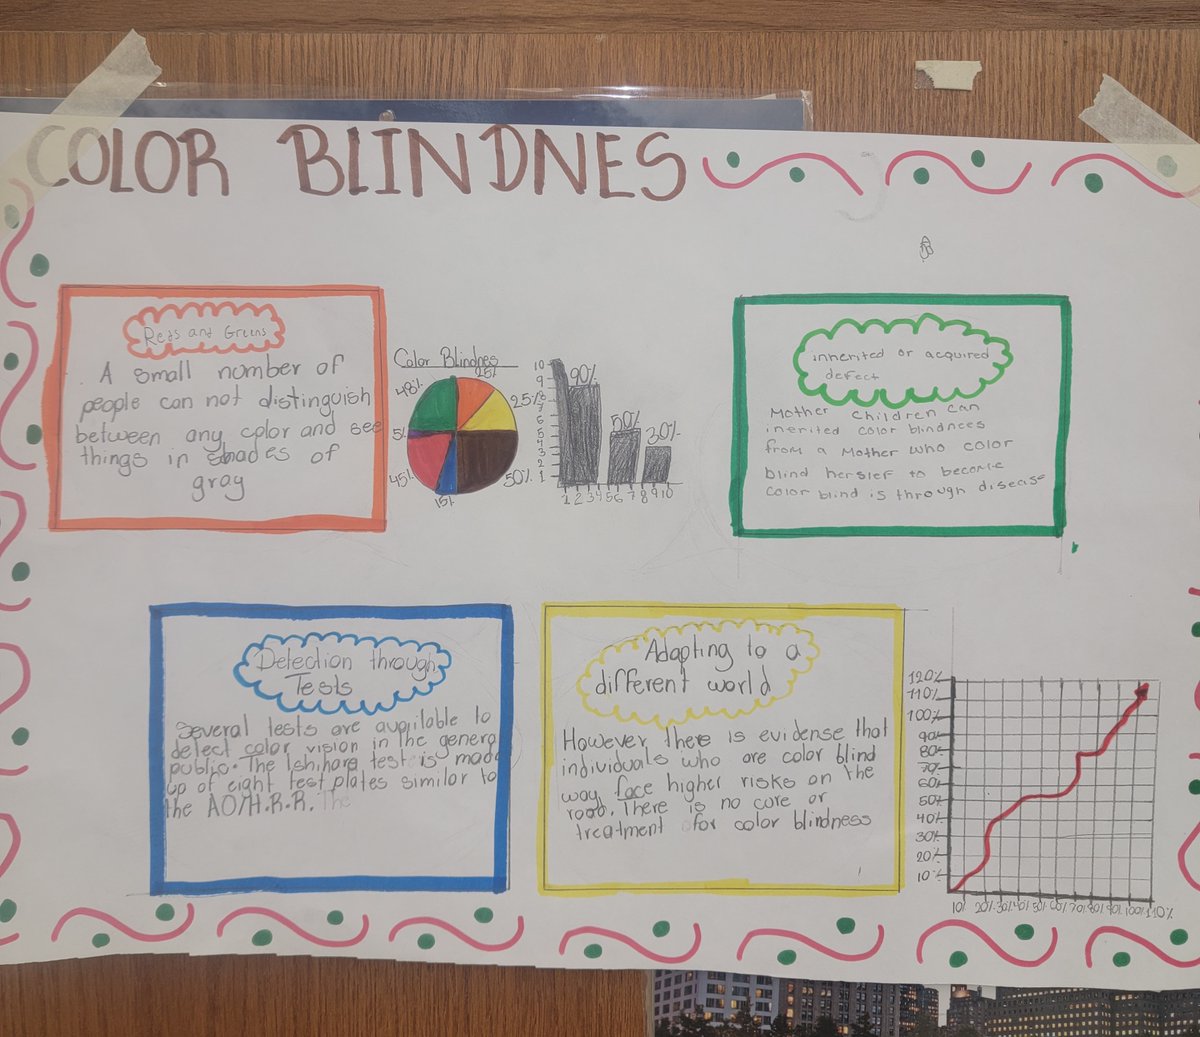 COLOR BLINDNES
Reds and Greens
A small number of
people can not distinguish
between any color and see
things in shades of
gray
Color Blindnes
48%
25%
25%
5%
45%
15%
50%
10
9
8
7
6
5
4
3
2
1
90%
50%
30%
1 2 3 4 5 6 7 8 9 10
inherited or acquired
defect
Mother Children can
inerited color blindnees
from a Mother who color
blind herslef to become
color blind is through disease
Detection through
Tests
Several tests are available to
detect color vision in the general
public. The Ishihara test is made
up of eight test plates similar to
the AO/H.R.R. The
Adapting to a
different world
However there is evidense that
individuals who are color blind
way face higher risks on the
road. There is no cure or
treatment for color blindness
120%
110%
100%
90%
80%
70%
60%
50%
40%
30%
20%
10%
10% 20% 30% 40% 50% 60% 70% 80% 90% 100% 110%